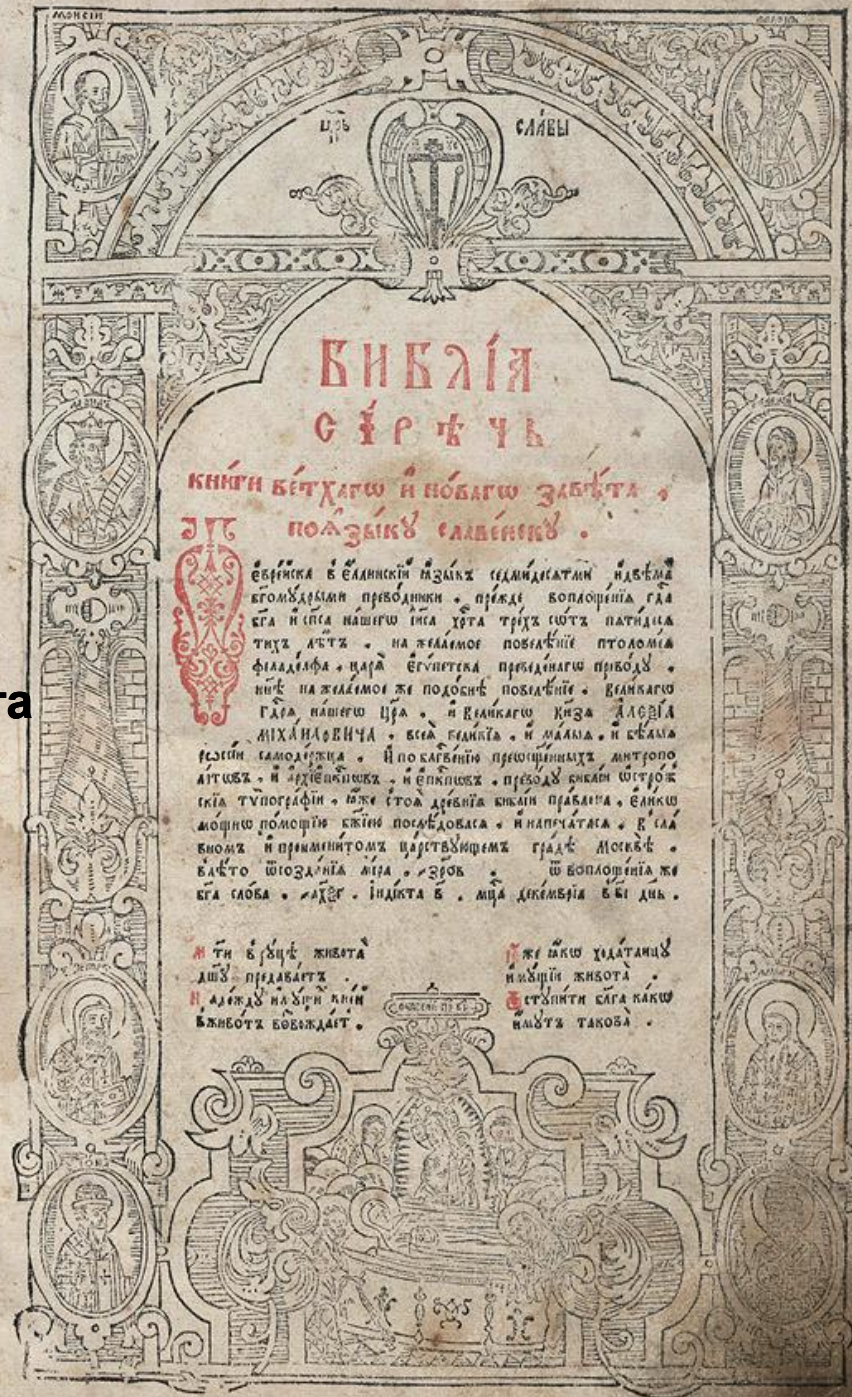 МОИСЕИ
цр҃ь СЛА́ВЫ
БИБЛІ́А
СИ́РѢЧЬ
кни́ги ве́тхагѡ и҆ но́вагѡ завѣ́та .
поꙗ҆зы́кꙋ славе́нскꙋ .
Ѿ
е҆вре́йска в е҆́ллинскїй ꙗ҆зы́къ седмидесѧтми и҆двѣма̀
бг҃омꙋ́дрыми прево́дники . пре́жде воплоще́нїѧ гд҇а
бг҃а и сп҃са на́шегѡ і҆и҃са хр҇та̀ тре́хъ сѡ́тъ пѧтидесѧ
тихъ лѣ́тъ . на жела́емое повелѣ́нїе птоломе́ѧ
филаде́лфа . царѧ̀ є҆гѵ́петска преведе́нагѡ прево́дꙋ .
нн҃ѣ на жела́емое же подо́бнѣ повелѣ́нїе . вели́кагѡ
гд҇рѧ на́шегѡ цр҃ѧ̀ . и҆ вели́кагѡ кн҃зѧ АЛЕѮІА
МІХА́ИЛОВИЧА . всеѧ̀ вели́кїѧ . и҆ ма́лыѧ . и҆ бѣ́лыѧ
рѡссі́и самоде́ржца . И҆ по блгⷭ҇ве́нїю преѡсщ҃е́нныхъ митропо
ли́тѡвъ . и҆ а҆рхїе҆пⷭ҇кпѡвъ . и҆ е҆пⷭ҇кпѡвъ . прево́дꙋ библі́и ѡ҆стро́ж
скїѧ тѷпогра́фїи . ю҆́же стоѧ̀ дре́внїѧ библі́и пра́влена . е҆ли́кѡ
мо́щнѡ по́мощїю бж҃їею послѣ́довасѧ . и҆ напеча́тасѧ . В сла́
вномъ и҆ преиме́нитомъ ца́рствꙋющемъ гра́дѣ Москвѣ̀ .
влѣ́то ѿсозда́нїѧ мі́ра . ҂зро́в . ѿ воплоще́нїѧ же
бг҃а сло́ва . ҂ах҃ѯг . і҆нди́кта в҃ . мц҇а деке́мврїа в в҃і дн҃ь .
М ти в рꙋ́цѣ живота̀
дш҃ꙋ предава́етъ .
Н аде́ждꙋ
вживо́тъ вово́ждаетъ .
же ꙗ҆́кѡ хода́таицꙋ
и҆мꙋ́щїи живота̀ .
стꙋпи́ти бл҃га ка́кѡ
и҆́мꙋтъ такова̀ .
га